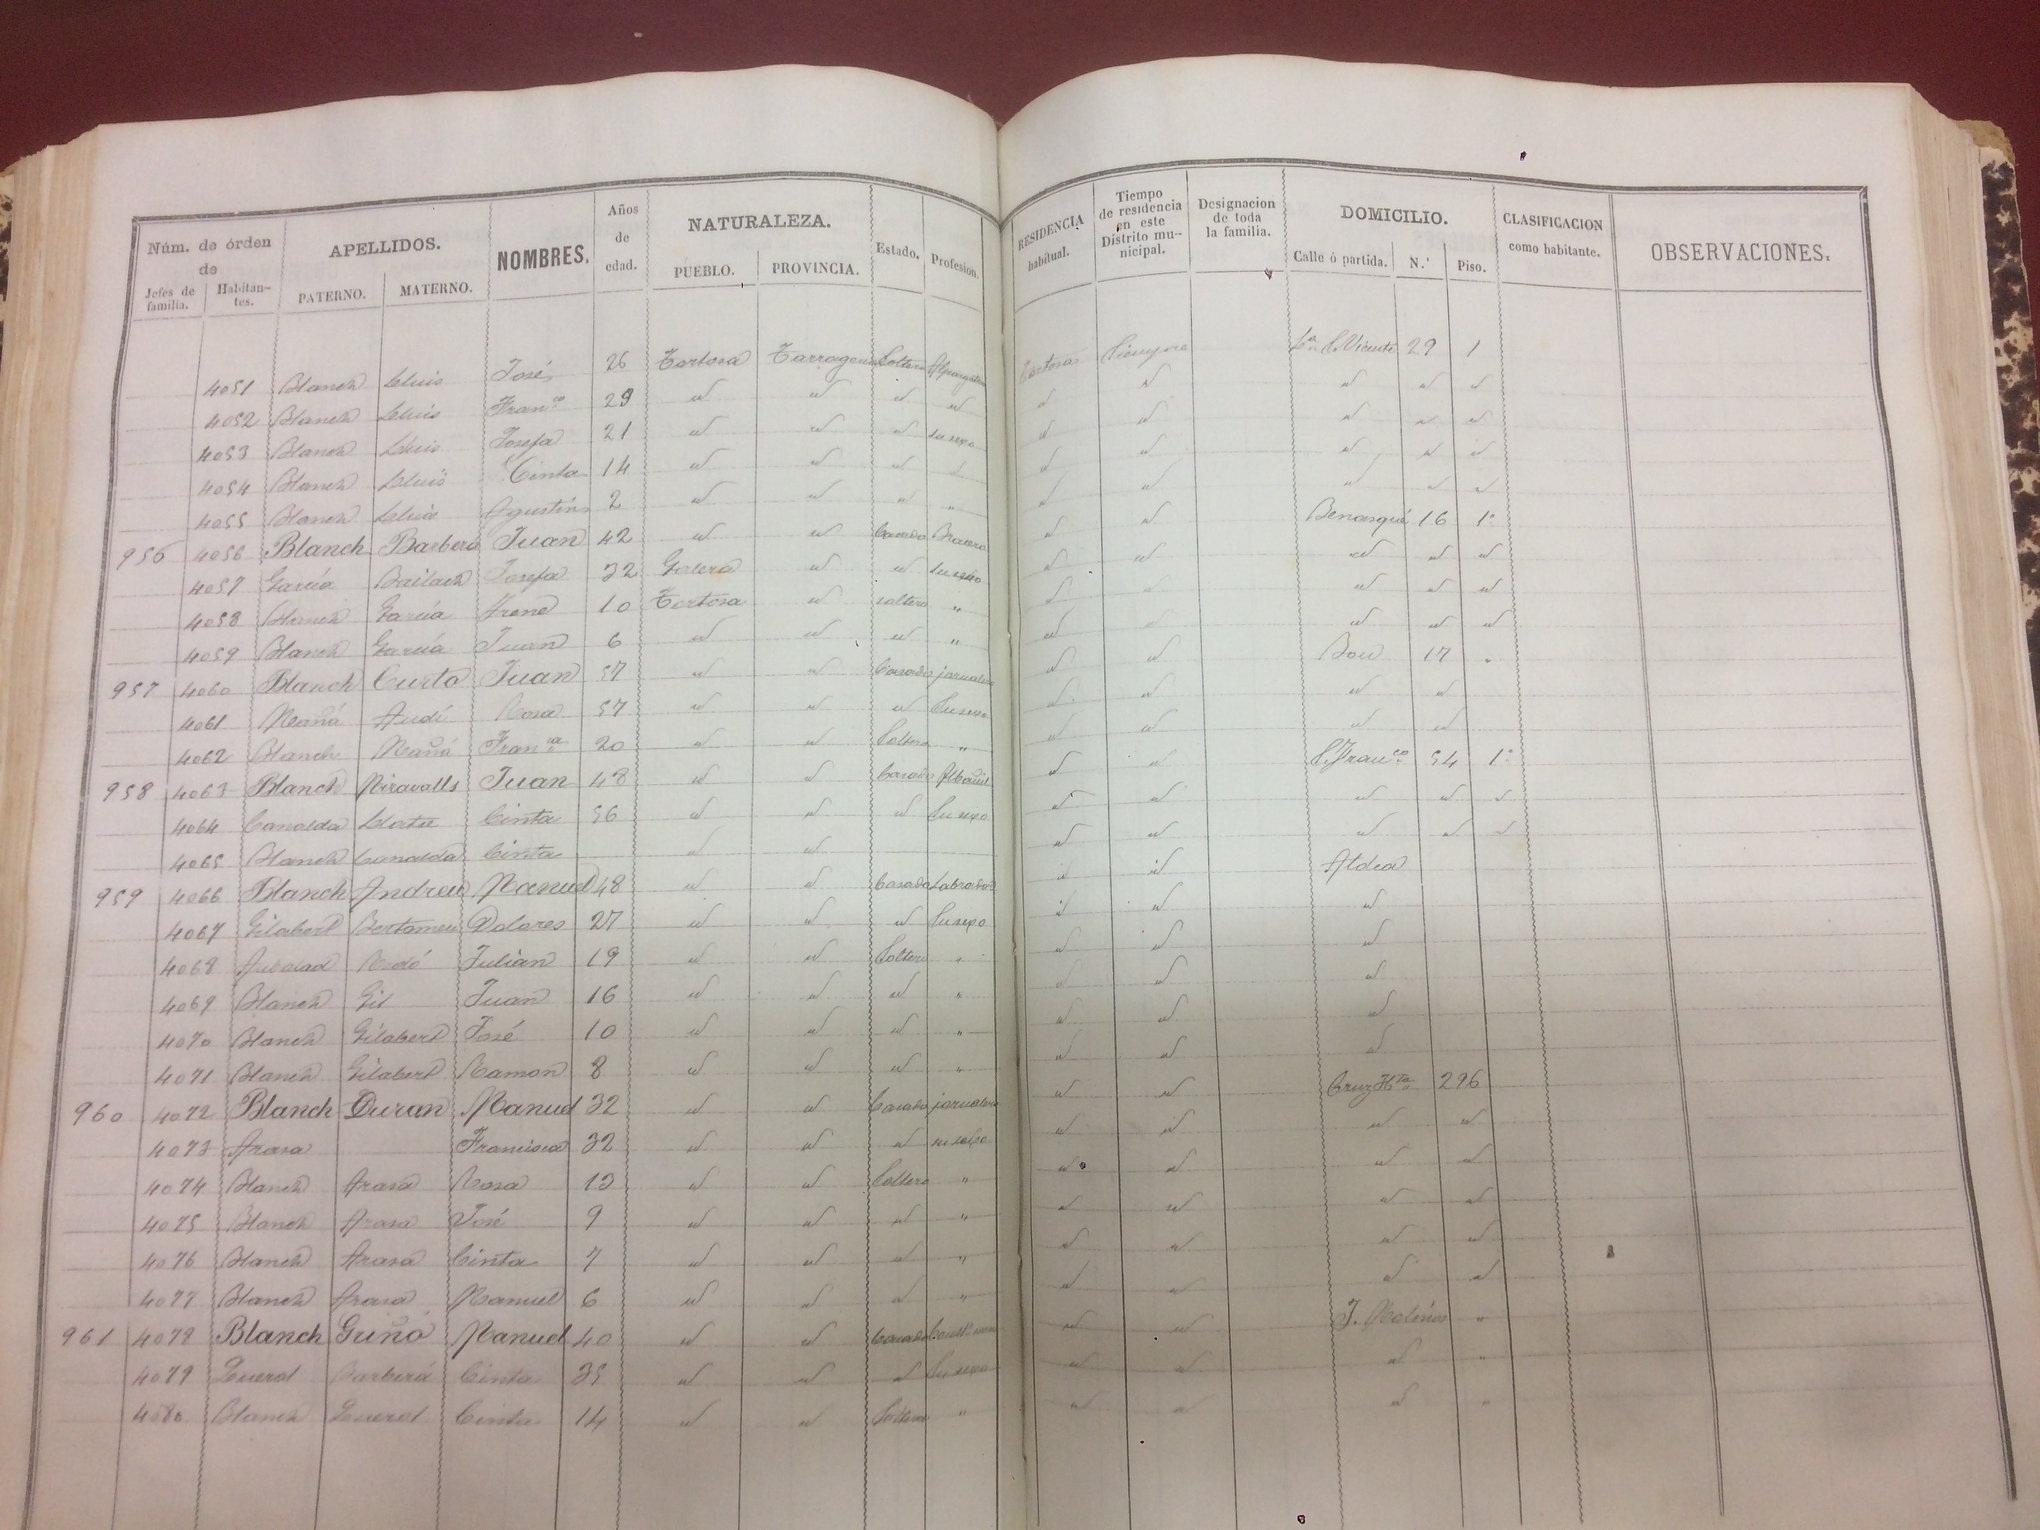 Núm. de órden de
Jefes de familia.
Habitantes.
APELLIDOS.
PATERNO.
MATERNO.
NOMBRES.
Años de edad.
NATURALEZA.
PUEBLO.
PROVINCIA.
Estado.
Profesion.
RESIDENCIA habitual.
Tiempo de residencia en este Distrito municipal.
Designacion de toda la familia.
DOMICILIO.
Calle ó partida.
N.º
Piso.
CLASIFICACION como habitante.
OBSERVACIONES.
4051 Blanch Lluis José 26 Tortosa Tarragona Soltero Tortosa Siempre 29 1
4052 Blanch Lluis Fran.co 29 id id id id id id id id id
4053 Blanch Lluis Josefa 21 id id id su sexo id id id id id
4054 Blanch Lluis Cinta 14 id id id id id id id id id
4055 Blanch Lluis Agustin 2 id id id " id id id id id
956 4056 Blanch Barberá Juan 42 id id Casado Bracero id id Benasqué 16 1º
4057 Garcia Bailach Josefa 32 Galera id id su sexo id id id id id
4058 Blanch Garcia Irene 10 Tortosa id soltero " id id id id id
4059 Blanch Garcia Juan 6 id id id " id id id id id
957 4060 Blanch Curto Juan 57 id id Casado jornalero id id Bou 17 "
4061 Mañá Audí Rosa 57 id id id Su sexo id id id id
4062 Blanch Mañá Fran.ca 20 id id Soltera " id id id id
958 4063 Blanch Miravalls Juan 48 id id Casado Albañil id id S. Fran.co 54 1º
4064 Canalda Cinta 56 id id id Su sexo id id id id id
4065 Blanch Canalda Cinta id id id id id id id
959 4066 Blanch Andreu Manuel 48 id id Casado Labrador id id Aldea
4067 Gilabert Bertomeu Dolores 27 id id id Su sexo id id id
4068 Redó Julián 19 id id Soltero " id id id
4069 Blanch Gil Juan 16 id id id " id id id
4070 Blanch Gilabert José 10 id id id " id id id
4071 Blanch Gilabert Ramon 8 id id id " id id id
960 4072 Blanch Duran Manuel 32 id id Casado jornalero id id Cruz 296
4073 Arasa Francisca 32 id id id su sexo id id id id
4074 Blanch Arasa Rosa 13 id id Soltero " id id id id
4075 Blanch Arasa José 9 id id id " id id id id
4076 Blanch Arasa Cinta 7 id id id " id id id id
4077 Blanch Arasa Manuel 6 id id id " id id id id
961 4078 Blanch Guiño Manuel 40 id id Casado id id J. Molinos "
4079 Querol Barberá Cinta 35 id id id Su sexo id id id "
4080 Blanch Querol Cinta 14 id id Soltera " id id id "